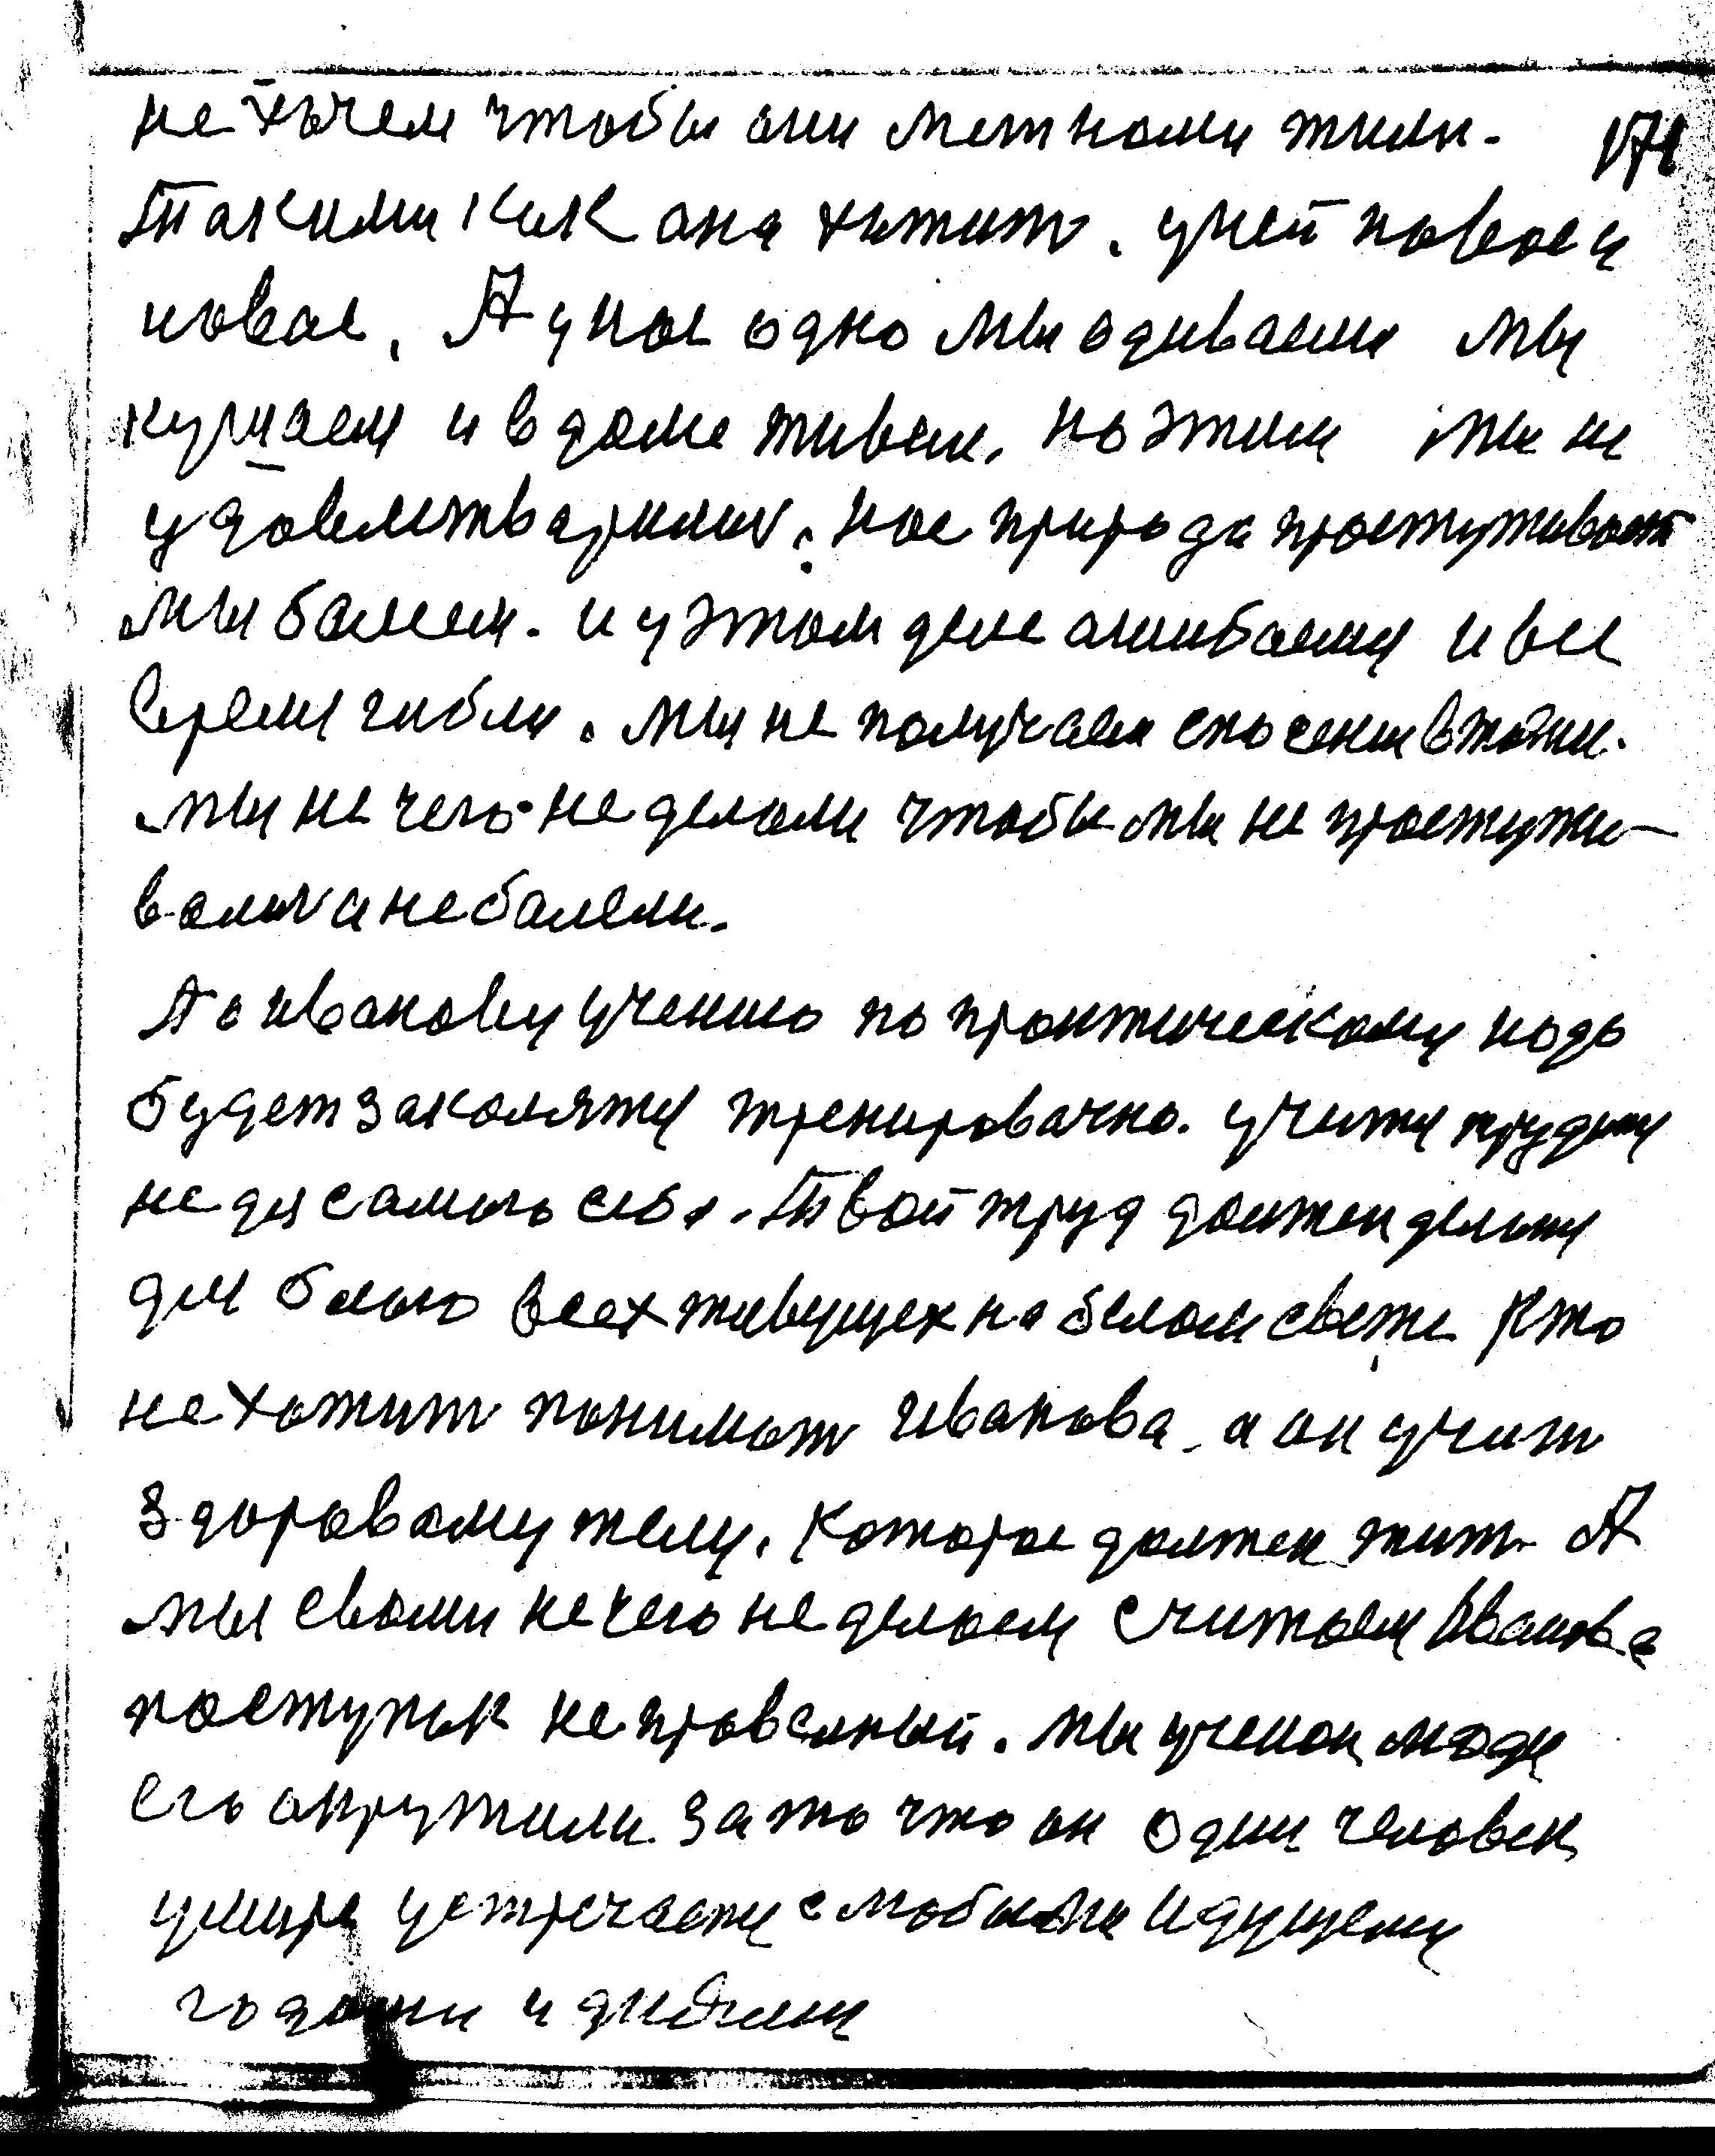 не хочем чтобы они меж нами жили. 171
Такими как она хотит. у ней новое и
новое. А у нас одно мы одеваем мы
кушаем и в доме живем. но этим мы не
удовлетварились. нас природа простуживает
мы балеем. и у этом деле ашибаемся и все
время гибли. мы не получаем спосения в жизни.
мы не чего не делали чтобы мы не простужи-
вались и не балели.
А по Иванову учению по практическому надо
будет закаляться тренировачно. учится трудится
не для самого себя. Твой труд должен делаться
для благо всех живущех на белом свете Кто
не хотит понимать Иванова. а он учит
здоровому телу. Которое должен жить. А
мы сваими не чего не делаем считаем Иванова
поступок неправельный. мы ученаи люди
его акружили за то что он один человек
у мире устречается с любыми идущеми
годами и